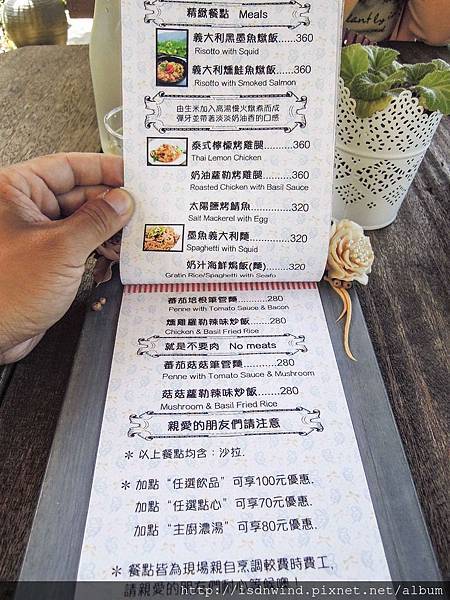 精緻餐點 Meals
義大利黑墨魚燉飯......360
Risotto with Squid
義大利燻鮭魚燉飯....360
Risotto with Smoked Salmon
由生米加入高湯慢火燉煮而成
彈牙並帶著淡淡奶油香的口感
泰式檸檬烤雞腿.......360
Thai Lemon Chicken
奶油蘿勒烤雞腿.........360
Roasted Chicken with Basil Sauce
太陽鹽烤鯖魚............320
Salt Mackerel with Egg
墨魚義大利麵............320
Spaghetti with Squid
奶汁海鮮焗飯(麵)........320
Gratin Rice/Spaghetti with Seafo
蕃茄培根筆管麵..........280
Penne with Tomato Sauce & Bacon
燻雞蘿勒辣味炒飯......280
Chicken & Basil Fried Rice
就是不要肉 No meats
蕃茄菇菇筆管麵...........280
Penne with Tomato Sauce & Mushroom
菇菇蘿勒辣味炒飯.......280
Mushroom & Basil Fried Rice
親愛的朋友們請注意
＊以上餐點均含：沙拉.
＊加點“任選飲品”可享100元優惠.
加點“任選點心”可享70元優惠.
加點“主廚濃湯”可享80元優惠.
＊餐點皆為現場親自烹調較費時費工,
請親愛的朋友們耐心等候噢！
http://isdnwind.pixnet.net/album